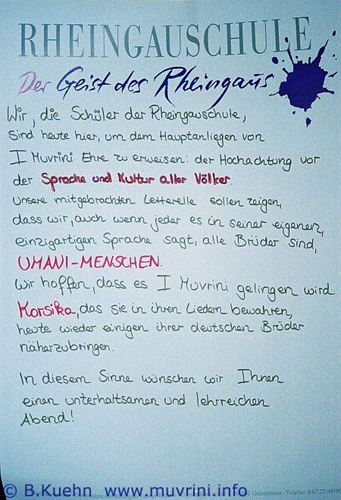 RHEINGAUSCHULE
Der Geist des Rheingaus
Wir, die Schüler der Rheingauschule,
sind heute hier, um dem Hauptanliegen von
I Muvrini Ehre zu erweisen: der Hochachtung vor
der Sprache und Kultur aller Völker.
Unsere mitgebrachten Letterelle sollen zeigen,
dass wir, auch wenn jeder es in seiner eigenen,
einzigartigen Sprache sagt, alle Brüder sind,
UMANI-MENSCHEN.
Wir hoffen, dass es I Muvrini gelingen wird
Korsika, das sie in ihren Liedern bewahren,
heute wieder einigen ihrer deutschen Brüder
näherzubringen.
In diesem Sinne wünschen wir Ihnen
einen unterhaltsamen und lehrreichen
Abend!
Geisenheim · Telefon 06722/
© B.Kuehn www.muvrini.info